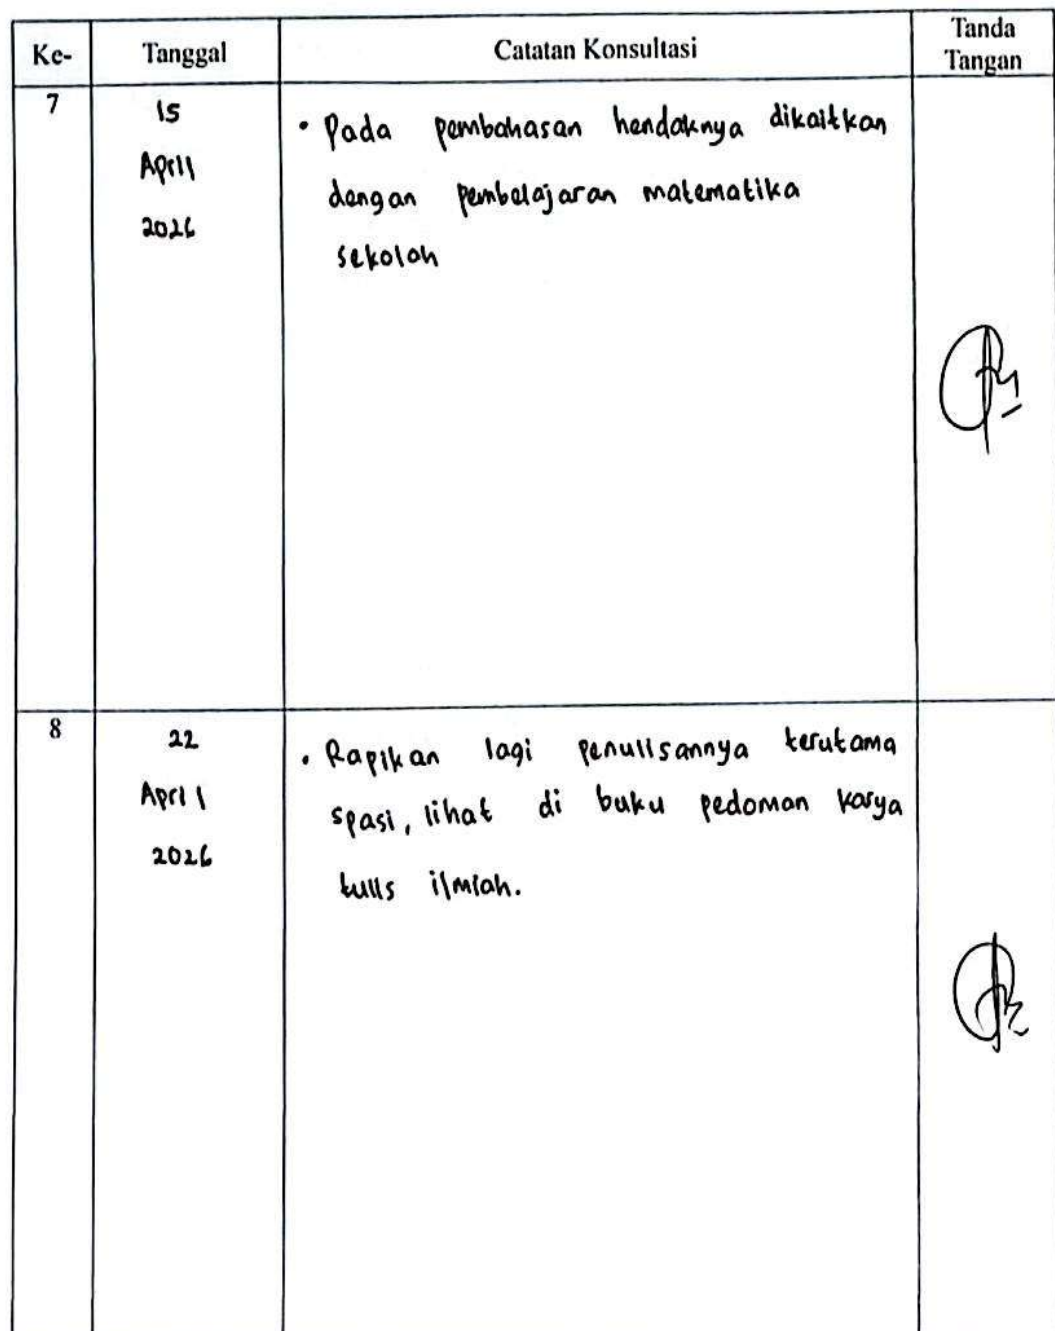 Ke- Tanggal Catatan Konsultasi Tanda Tangan
7 15 April 2026
• Pada pembahasan hendaknya dikaitkan
dengan pembelajaran matematika
sekolah
8 22 April 2026
• Rapikan lagi penulisannya terutama
spasi, lihat di buku pedoman karya
tulis ilmiah.